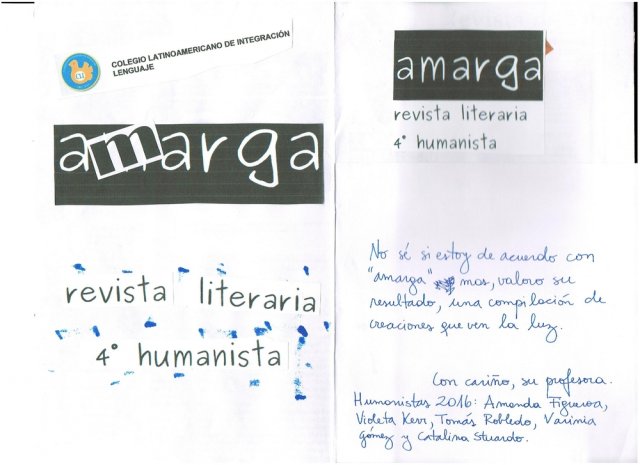 COLEGIO LATINOAMERICANO DE INTEGRACIÓN
LENGUAJE
amarga
revista literaria
4° humanista
amarga
revista literaria
4° humanista
No sé si estoy de acuerdo con
"amarga" mas, valoro su
resultado, una compilación de
creaciones que ven la luz.
Con cariño, su profesora.
Humanistas 2016: Amanda Figueroa,
Violeta Kerr, Tomás Robledo, Varinia
Gómez y Catalina Stuardo.